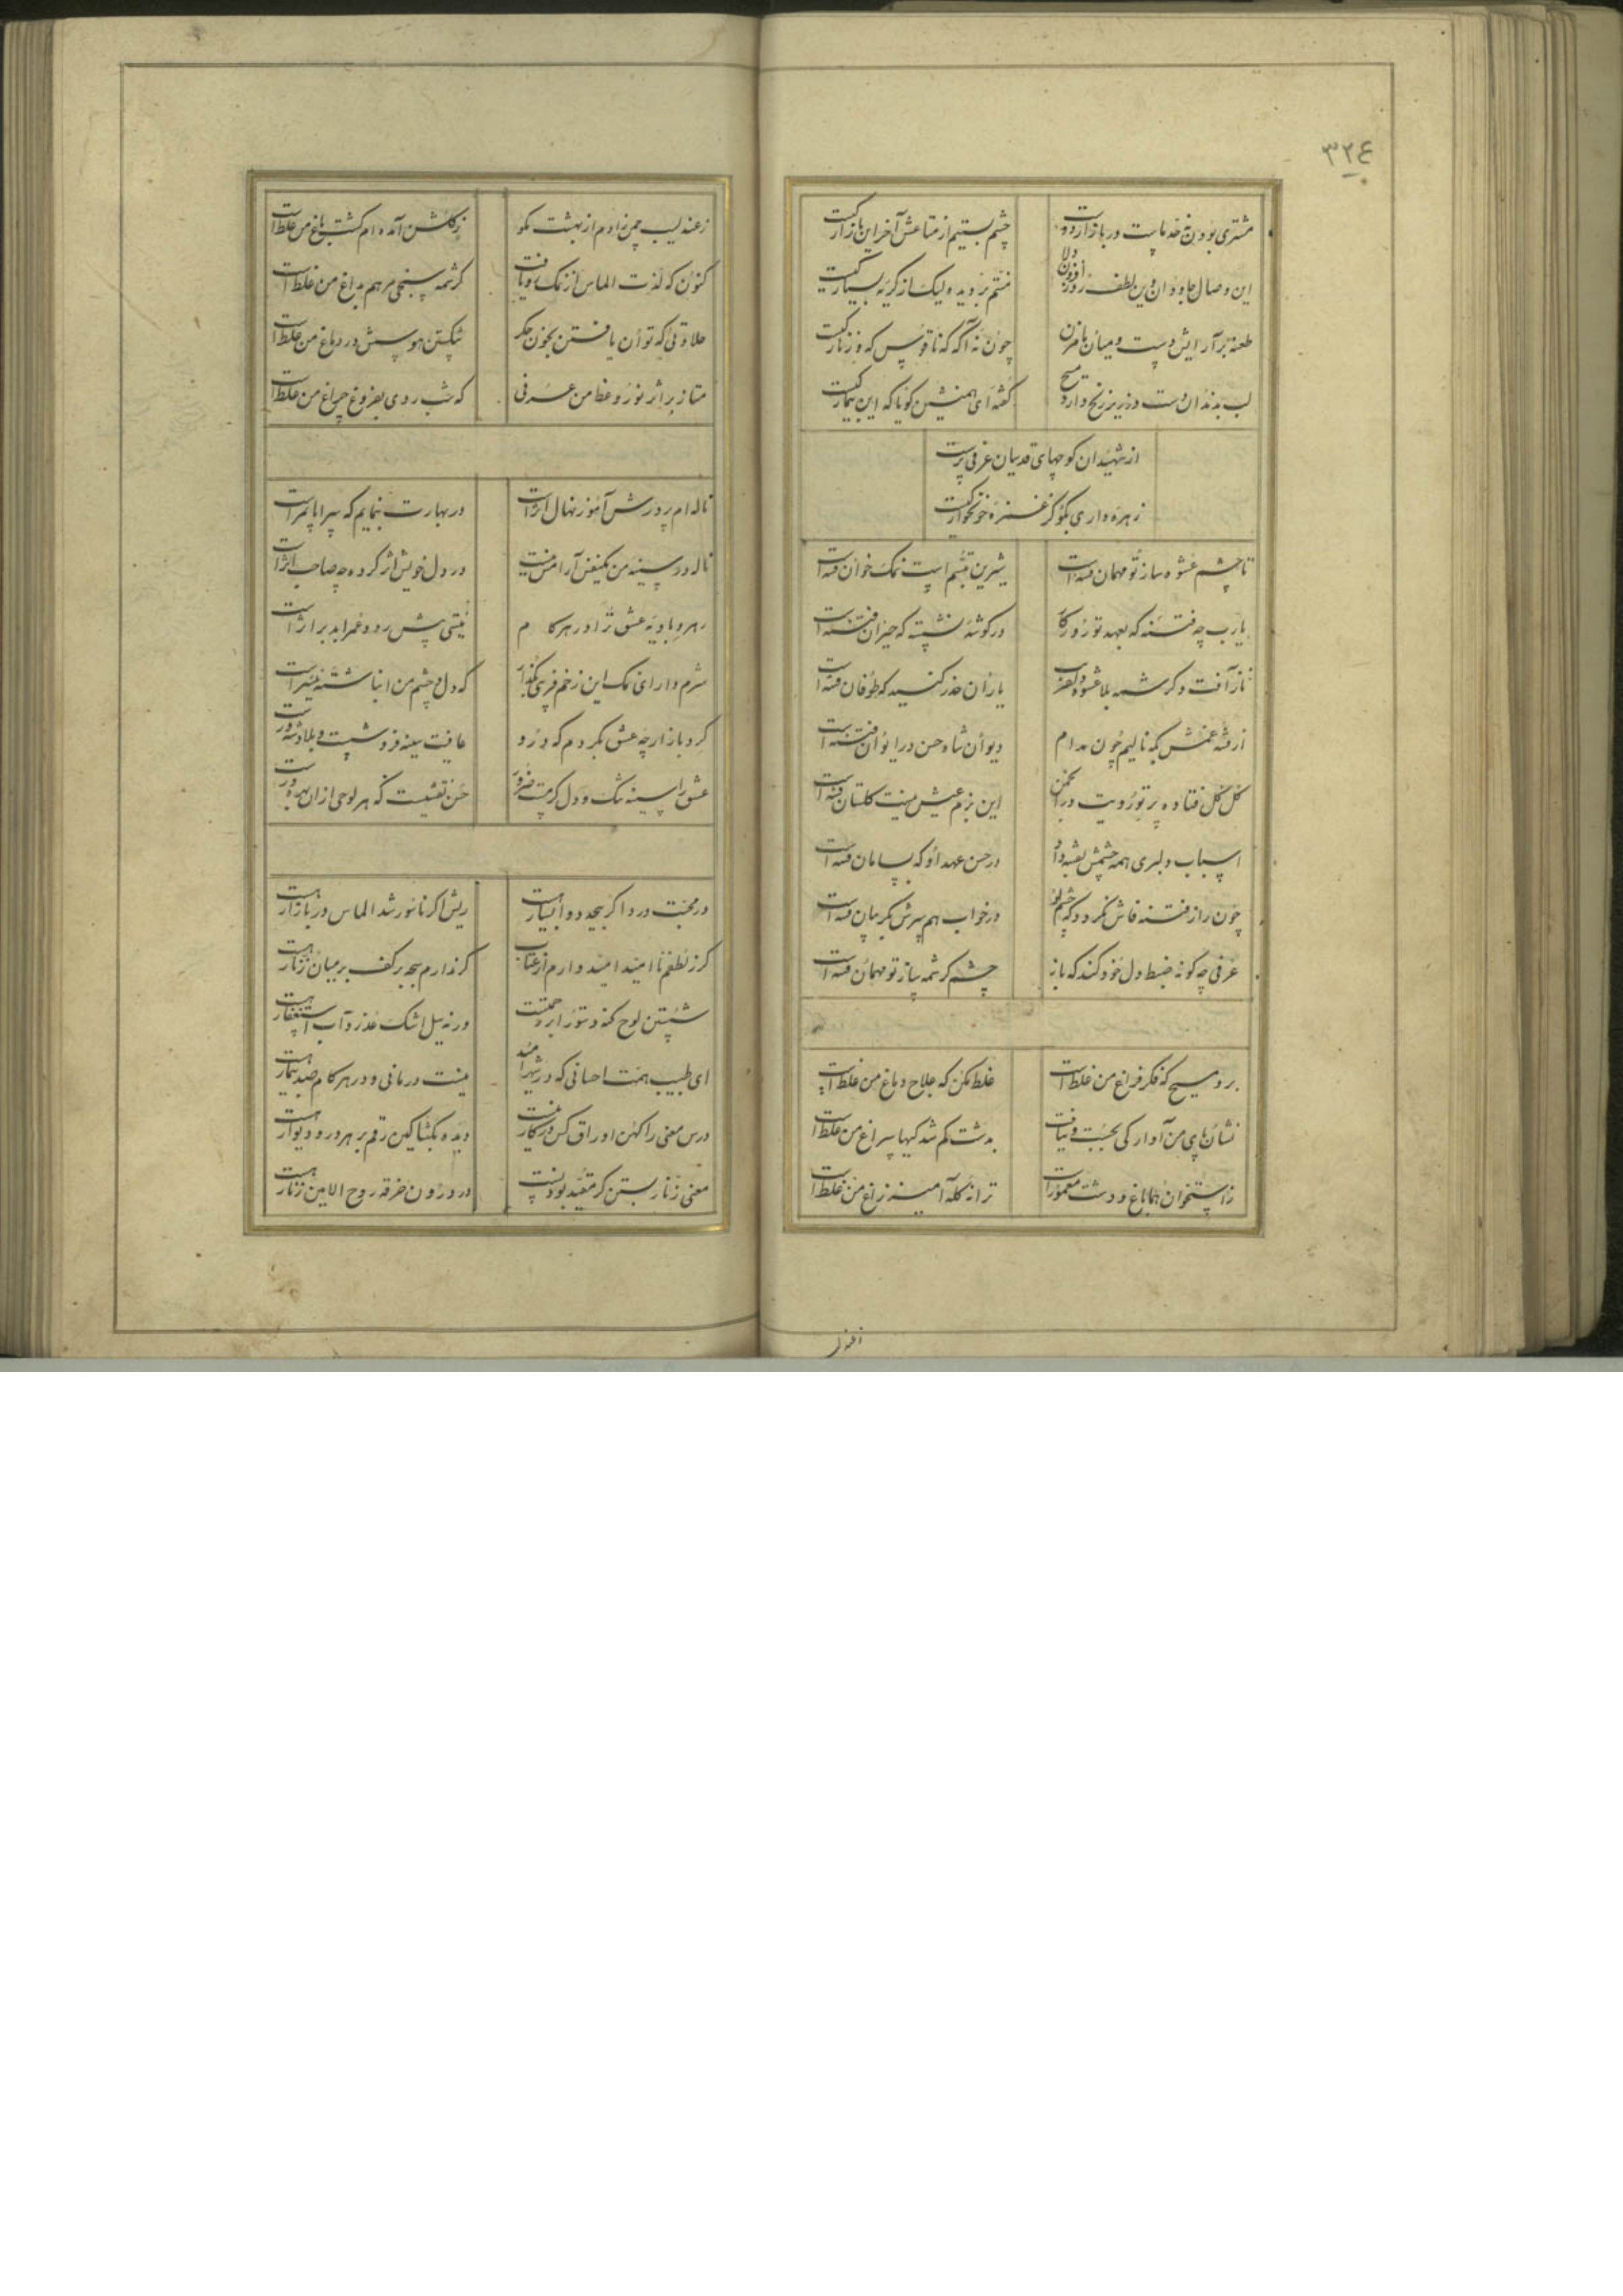 ٣٢٤
مشتری بودن نه خدماست در بازار دوست
چشم بستیم از متاعش آخر این بازار کیست
این وصال جاودان وین لطف روز افزون ولا
منتم بر دیده لیک از گریهٔ بسیار کیست
طعنه بر آرایش دست و میان ما مزن
چون نهٔ آگه که ناقوس که و زنار کیست
لب بدندانست و زیر لب رنج دارد مسیح
کشتهٔ ای همنشین گویا که این بیمار کیست
از شهیدان کوچهای قدسیان عرفی پرست
زهره داری بگو کز غمزهٔ خونخوار کیست
تا چشم عشوه ساز تو مهمان فتنه است
شیرین تبسم است نمک خوان فتنه است
یارب چه فتنهٔ که بعهد تو روزگار
در گوشهٔ نشسته که حیران فتنه است
ناز آفت و کرشمه بلا عشوه
یاران حذر کنید که طوفان فتنه است
از فتنهٔ غمش بکه نالیم چون مدام
دیوان شاه حسن در ایوان فتنه است
گل گل فتاده پرتو رویت در انجمن
این بزم عیش نیست گلستان فتنه است
اسباب دلبری همه چشمش بفتنه داد
در حسن عهد او که بسامان فتنه است
چون راز فتنه فاش نگردد که چشم تو
در خواب هم سرش بگریبان فتنه است
عرفی چه گونه ضبط دل خود کند که باز
چشم کرشمه ساز تو مهمان فتنه است
برو مسیح که فکر فراغ من غلط است
غلط مکن که علاج دماغ من غلط است
نشان پای من آوارگی بجست و نیافت
بدشت گم شدگیها سراغ من غلط است
ز استخوان هما باغ و دشت معمور است
ترانهٔ گله آمیز زاغ من غلط است
ز عندلیب چمن زادم از بهشت مگو
ز گلشن آمده ام گشت باغ من غلط است
کنون که لذت الماس از نمک دریافت
کرشمه سنجی مرهم بداغ من غلط است
حلاوتی که توان یافتن بخون جگر
شکستن هوسش در دماغ من غلط است
متاز بر اثر نور وعظ من عرفی
که شب روی بفروغ چراغ من غلط است
ناله ام پرورش آموز نهال اثر است
در بهارت بنمایم که سراپا ثمر است
ناله در سینهٔ من یکنفس آرامش نیست
در دل خویش اثر کرده چه صاحب اثر است
رهرو بادیهٔ عشق ترا در هر گام
نیستی پیش رو و عمر ابد بر اثر است
شرم دار ای نمک این زخم فریبی بگذار
که دل و چشم من انباشتهٔ نیشتر است
گرد بازارچهٔ عشق بگردم که درو
عافیت سینه فروشست و بلا دشنه ور است
عشق را سینهٔ تنگ و دل گرمست ضرور
حسن نقشیست که هر لوحی از آن بهره ور است
در محبت درد اگر بیحد دوا بسیار هست
ریش اگر ناسور شد الماس در بازار هست
گر ز لطفم ناامید امید دارم از عتاب
گر ندارم سبحه بر کف بر میان زنار هست
شستن لوح گنه دستور ابر رحمتست
ورنه سیل اشک عذر و آب استغفار هست
ای طبیب همت احسانی که در شهر امید
نیست درمانی و در هر گام صد بیمار هست
درس معنی را کهن اوراق کس در کار نیست
دیده بگشا کین رقم بر هر در و دیوار هست
معنی زنار بستن گر مقید بودنست
در درون خرقهٔ روح الامین زنار هست